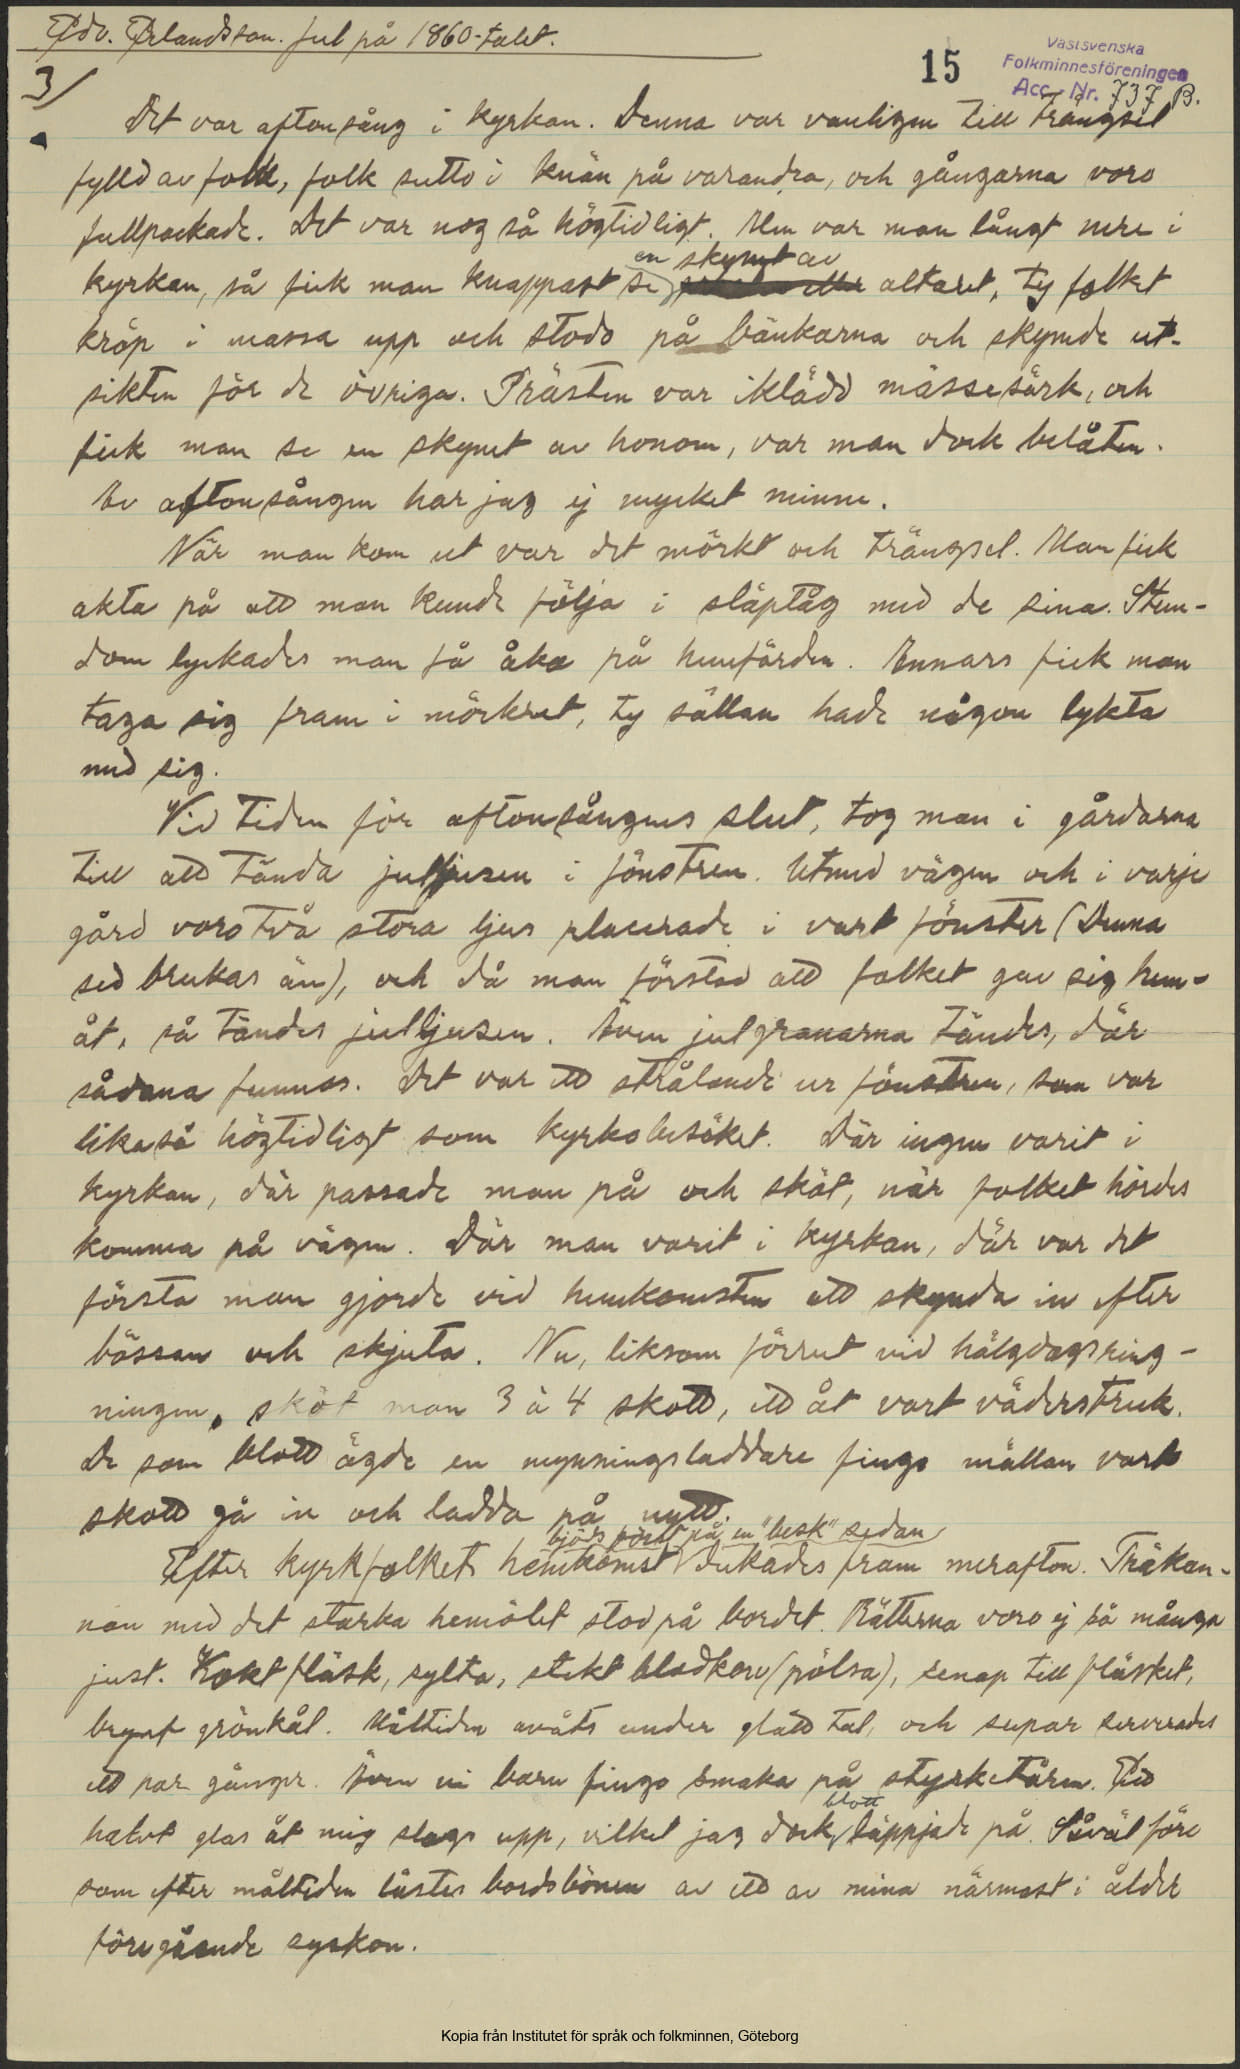 Edv. Erlandsson. Jul på 1860-talet.
15
Västsvenska
Folkminnesföreningen
Acc. Nr. 737 B.
3/
Det var aftonsång i kyrkan. Denna var vanligen till trängsel
fylld av folk, folk sutto i knän på varandra, och gångarna voro
fullpackade. Det var nog så högtidligt. Men var man långt nere i
en skymt av
kyrkan, så fick man knappast se altaret, ty folket
kröp i massa upp och stodo på bänkarna och skymde ut-
sikten för de övriga. Prästen var iklädd mässesärk, och
fick man se en skymt av honom, var man dock belåten.
Av aftonsången har jag ej mycket minne.
När man kom ut var det mörkt och trängsel. Man fick
akta på att man kunde följa i släptåg med de sina. Stun-
dom lyckades man få åka på hemfärden. Annars fick man
taga sig fram i mörkret, ty sällan hade någon lykta
med sig.
Vid tiden för aftonsångens slut, tog man i gårdarna
till att tända julljusen i fönstren. Utmed vägen och i varje
gård voro två stora ljus placerade i vart fönster (Denna
sed brukas än), och då man förstod att folket gav sig hem-
åt, så tändes julljusen. Även julgranarna tändes, där
sådana funnos. Det var ett strålande ur fönstren, som var
likaså högtidligt som kyrkobesöket. Där ingen varit i
kyrkan, där passade man på och sköt, när folket hördes
komma på vägen. Där man varit i kyrkan, där var det
första man gjorde vid hemkomsten att skynda in efter
bössan och skjuta. Nu, liksom förrut vid hälgdagsring-
ningen, sköt man 3 à 4 skott, ett åt vart väderstreck.
De som blott ägde en mynningsladdare fingo mällan vart
skott gå in och ladda på nytt.
bjöds först på en "besk" sedan
Efter kyrkfolkets hemkomst dukades fram merafton. Träkan-
nan med det starka hemölet stod på bordet. Rätterna voro ej så många
just. Kokt fläsk, sylta, stekt blodkorv (pölsa), senap till fläsket,
brynt grönkål. Måltiden avåts under glatt tal, och supar serverades
ett par gånger. Även vi barn fingo smaka på styrketåren. Ett
blott
halvt glas åt mig slogs upp, vilket jag dock läppjade på. Såväl före
som efter måltiden lästes bordsbönen av ett av mina närmast i ålder
föregående syskon.
Kopia från Institutet för språk och folkminnen, Göteborg